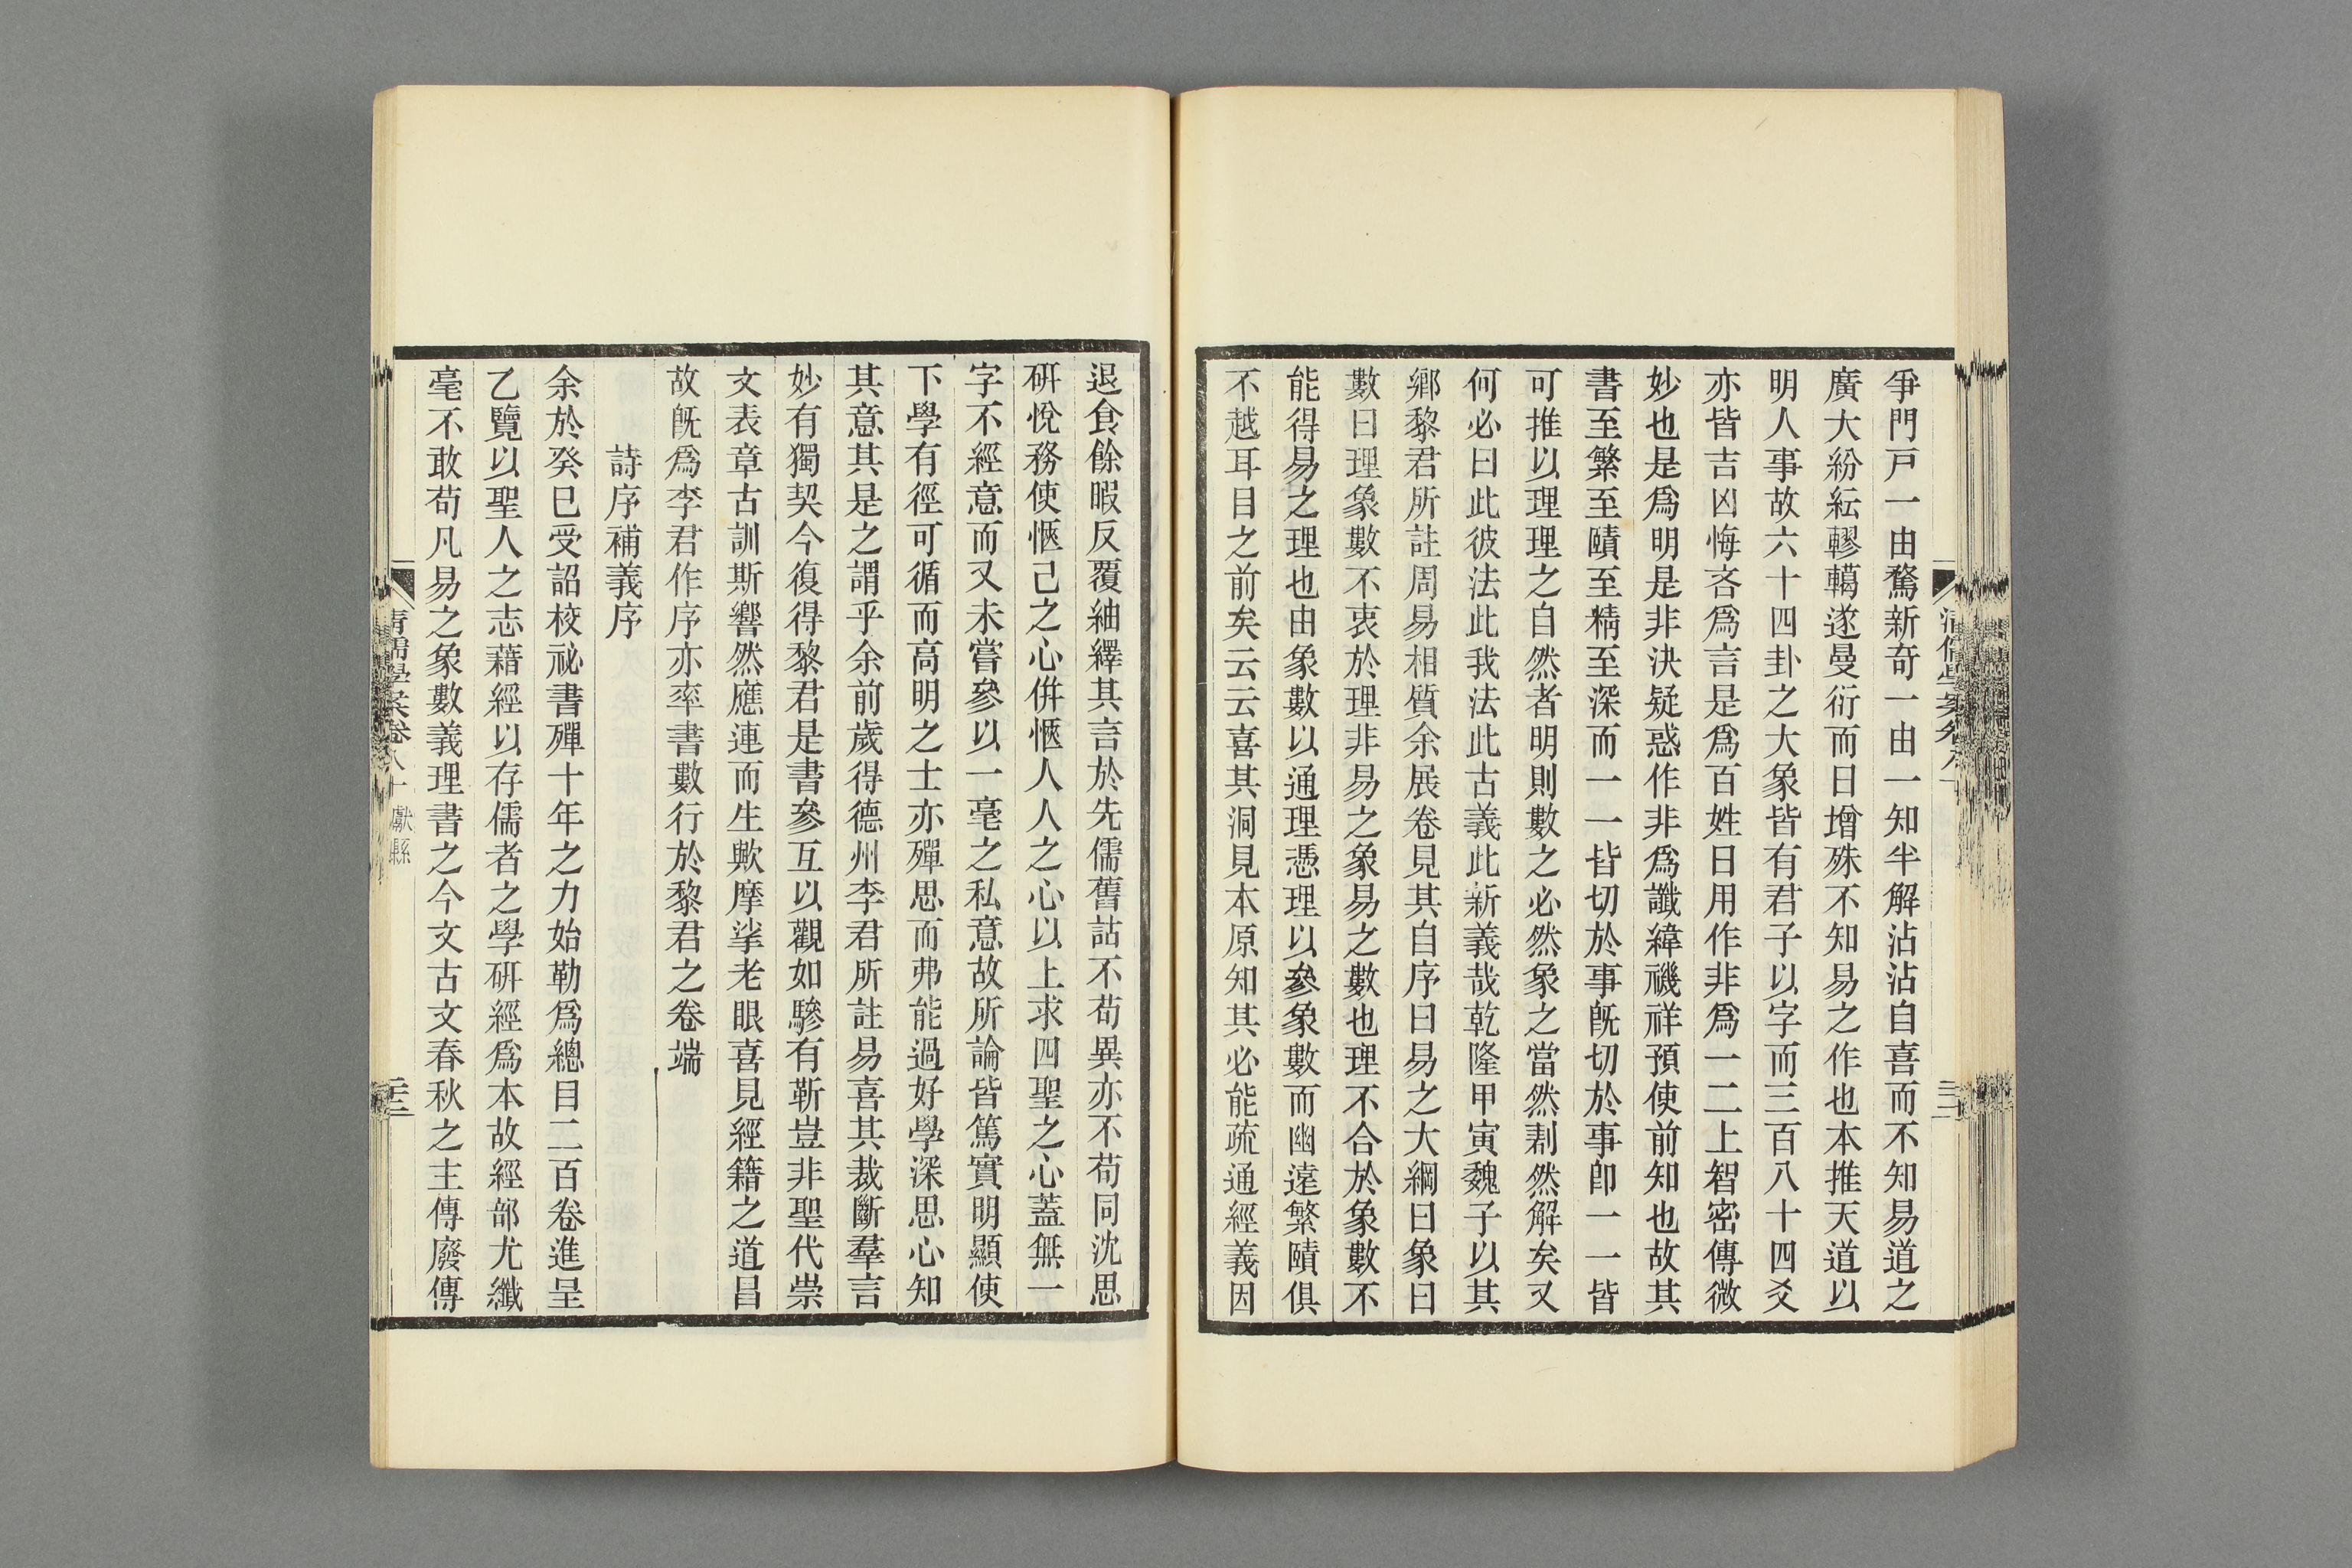 爭門戸一由騖新奇一由一知半解沾沾自喜而不知易道之
廣大紛紜轇轕遂曼衍而日增殊不知易之作也本推天道以
明人事故六十四卦之大象皆有君子以字而三百八十四爻
亦皆吉凶悔吝爲言是爲百姓日用作非爲一二上智密傳微
妙也是爲明是非決疑惑作非爲讖緯禨祥預使前知也故其
書至繁至賾至精至深而一一皆切於事旣切於事卽一一皆
可推以理理之自然者明則數之必然象之當然剨然解矣又
何必曰此彼法此我法此古義此新義哉乾隆甲寅魏子以其
鄉黎君所註周易相質余展卷見其自序曰易之大綱曰象曰
數曰理象數不衷於理非易之象易之數也理不合於象數不
能得易之理也由象數以通理憑理以參象數而幽遠繁賾俱
不越耳目之前矣云云喜其洞見本原知其必能疏通經義因
退食餘暇反覆紬繹其言於先儒舊詁不苟異亦不苟同沈思
硏悅務使愜己之心倂愜人人之心以上求四聖之心蓋無一
字不經意而又未嘗參以一毫之私意故所論皆篤實明顯使
下學有徑可循而高明之士亦殫思而弗能過好學深思心知
其意其是之謂乎余前歲得德州李君所註易喜其裁斷羣言
妙有獨契今復得黎君是書參互以觀如驂有靳豈非聖代崇
文表章古訓斯響然應連而生歟摩挲老眼喜見經籍之道昌
故旣爲李君作序亦率書數行於黎君之卷端
詩序補義序
余於癸巳受詔校祕書殫十年之力始勒爲總目二百卷進呈
乙覽以聖人之志藉經以存儒者之學硏經爲本故經部尤纖
毫不敢苟凡易之象數義理書之今文古文春秋之主傳廢傳
清儒學案卷八十 獻縣